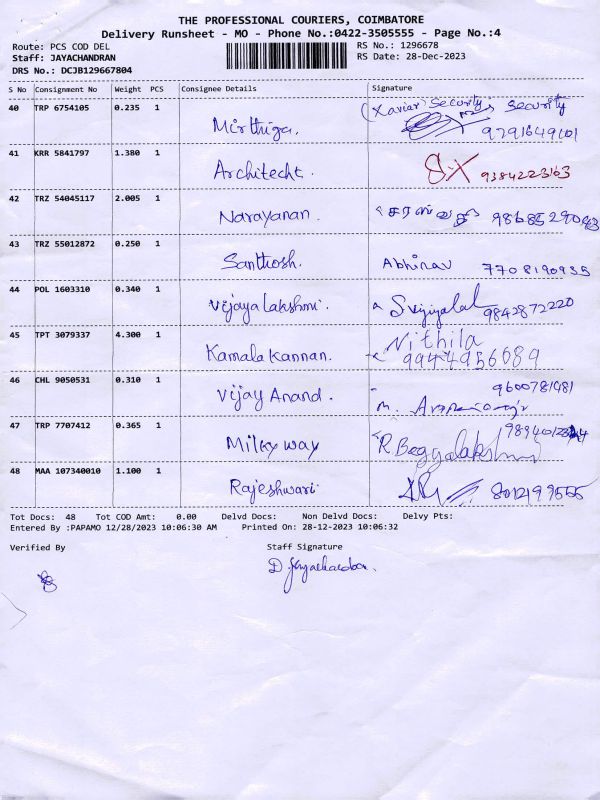 THE PROFESSIONAL COURIERS, COIMBATORE
Delivery Runsheet - MO - Phone No.:0422-3505555 - Page No.:4
Route: PCS COD DEL RS No.: 1296678
Staff: JAYACHANDRAN RS Date: 28-Dec-2023
DRS No.: DCJB129667804
S No Consignment No Weight PCS Consignee Details Signature
40 TRP 6754105 0.235 1 Mirthiga. (Xavier) Security, Security
9791649101
41 KRR 5841797 1.380 1 Architecht. 9384223163
42 TRZ 54045117 2.005 1 Narayanan. சரஸ்வதி
43 TRZ 55012872 0.250 1 Santhosh. Abhinav 7708190935
44 POL 1603310 0.340 1 Vijaya Lakshmi. 9842872220
45 TPT 3079337 4.300 1 Kamala Kannan. Nithila
9944956089
46 CHL 9050531 0.310 1 Vijay Anand. 9600781481
M.
47 TRP 7707412 0.365 1 Milky way R. Bagyalakshmi
48 MAA 107340010 1.100 1 Rajeshwari. 8012199555
Tot Docs: 48 Tot COD Amt: 0.00 Delvd Docs: Non Delvd Docs: Delvy Pts:
Entered By :PAPAMO 12/28/2023 10:06:30 AM Printed On: 28-12-2023 10:06:32
Verified By Staff Signature
D. Jeyachandran.